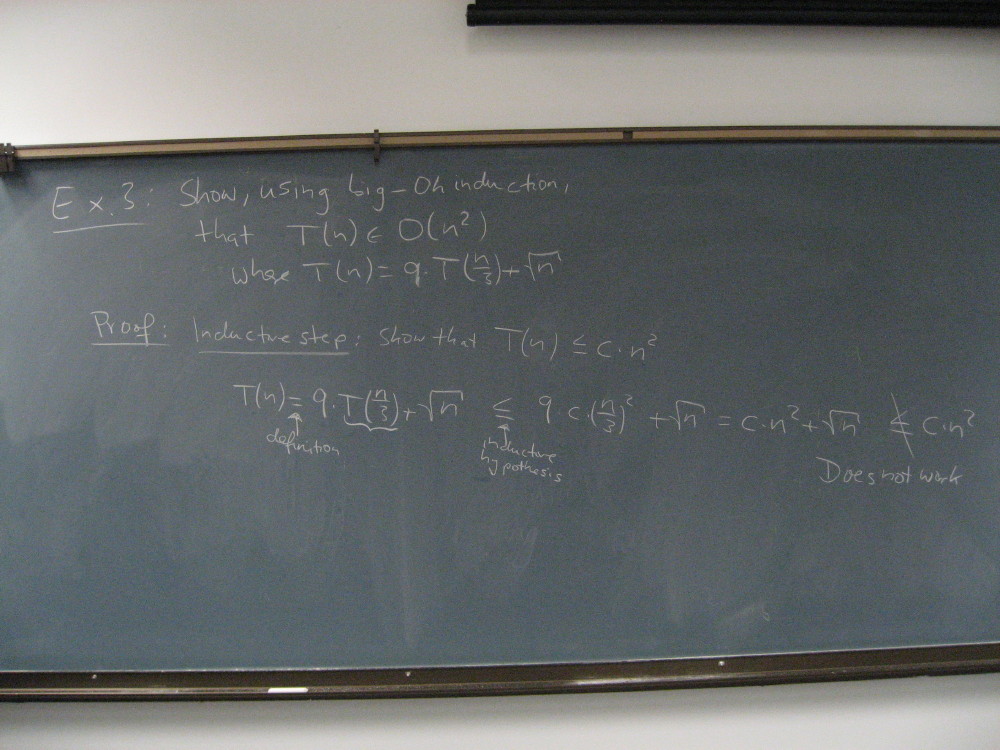 Ex.3: Show, using big-Oh induction,
that T(n) ∈ O(n²)
where T(n) = 9·T(n/3) + √n
Proof: Inductive step: show that T(n) ≤ c·n²
T(n) = 9·T(n/3) + √n ≤ 9·c·(n/3)² + √n = c·n² + √n ≰ c·n²
definition
inductive
hypothesis
Does not work